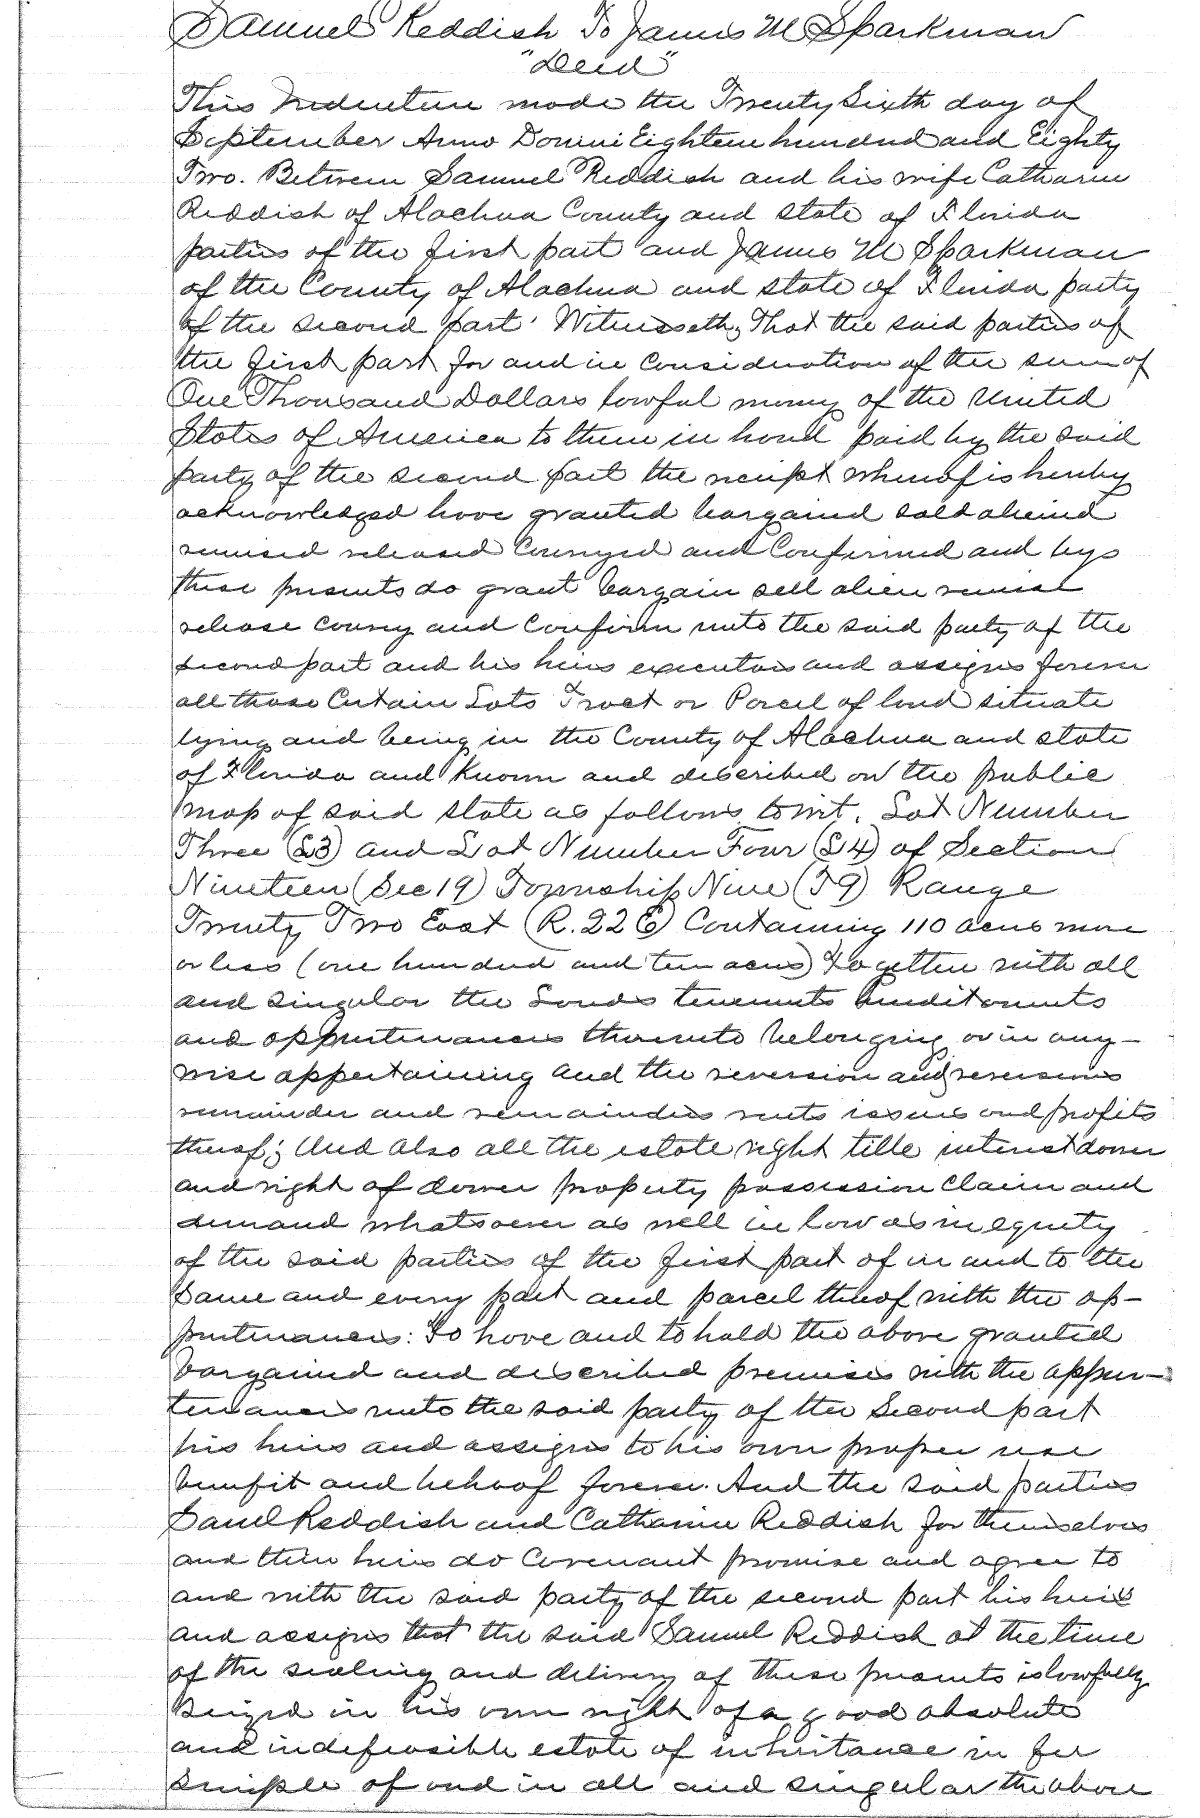 Samuel Reddish To James M Sparkman
"Deed"
This Indenture made the Twenty Sixth day of
September Anno Domini Eighteen hundred and Eighty
Two. Between Samuel Reddish and his wife Catharine
Reddish of Alachua County and state of Florida
parties of the first part and James M Sparkman
of the County of Alachua and state of Florida party
of the second part' Witnesseth, That the said parties of
the first part for and in consideration of the sum of
One Thousand Dollars lawful money of the United
States of America to them in hand paid by the said
party of the second part the receipt whereof is hereby
acknowledged have granted bargained sold aliened
remised released Conveyed and Confirmed and by
these presents do grant bargain sell alien remise
release convey and Confirm unto the said party of the
second part and his heirs executors and assigns forever
all those Certain Lots Tract or Parcel of land situate
lying and being in the County of Alachua and state
of Florida and Known and described on the public
map of said state as follows, towit. Lot Number
Three (L3) and Lot Number Four (L4) of Section
Nineteen (Sec 19) Township Nine (T9) Range
Twenty Two East (R. 22 E) Containing 110 acres more
or less (one hundred and ten acres) together with all
and singular the Lands tenements hereditaments
and appurtenances thereunto belonging or in any-
wise appertaining and the reversion and reversions
remainder and remainders rents issues and profits
thereof; And also all the estate right title interest dower
and right of dower property possession Claim and
demand whatsoever as well in law as in equity
of the said parties of the first part of in and to the
Same and every part and parcel thereof with the ap-
purtenances: To have and to hold the above granted
bargained and described premises with the appur-
tenances unto the said party of the Second part
his heirs and assigns to his own proper use
benefit and behoof forever. And the said parties
Saml Reddish and Catharine Reddish for themselves
and their heirs do Covenant promise and agree to
and with the said party of the second part his heirs
and assigns that the said Samuel Reddish at the time
of the sealing and delivery of these presents is lawfully
Seized in his own right of a good absolute
and indefeasible estate of inheritance in fee
Simple of and in all and singular the above